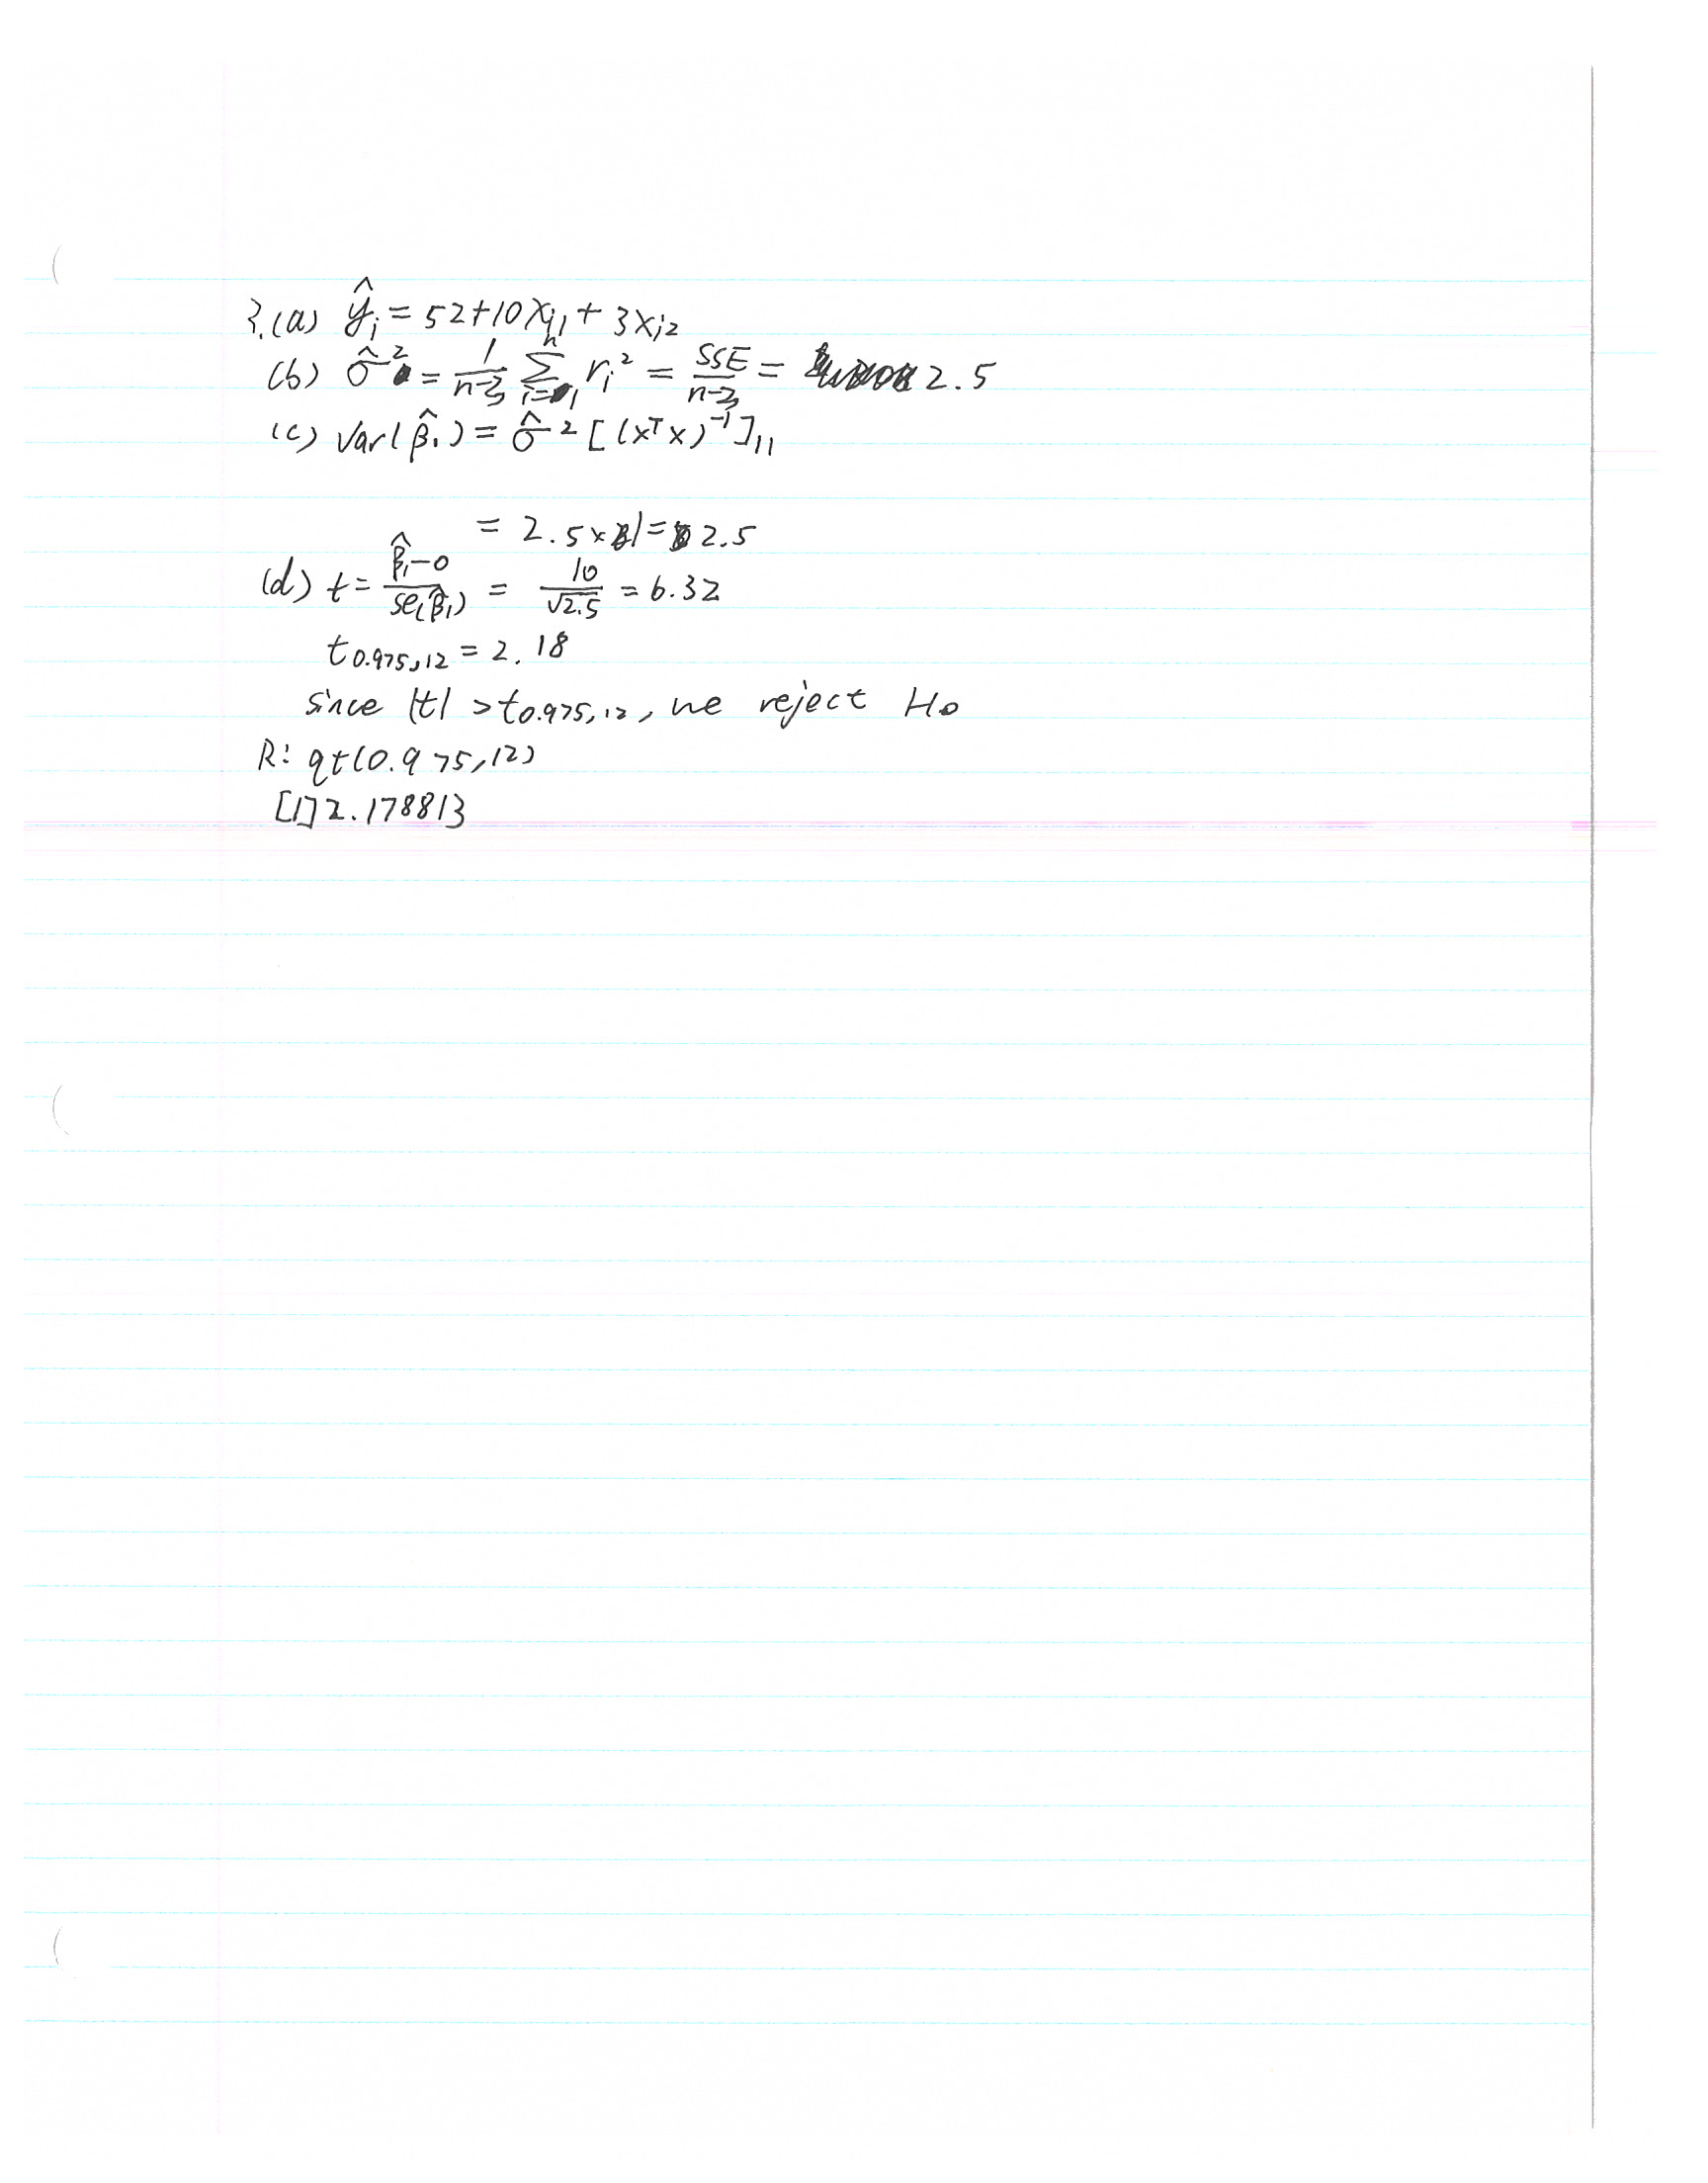 3.(a) ŷᵢ = 52+10xᵢ₁ + 3xᵢ₂
(b) σ̂² = 1/(n-3) Σᵢ₌₁ⁿ rᵢ² = SSE/(n-3) = 2.5
(c) Var(β̂₁) = σ̂² [(xᵀx)⁻¹]₁₁
= 2.5×1 = 2.5
(d) t = (β̂₁-0)/se(β̂₁) = 10/√2.5 = 6.32
t₀.₉₇₅,₁₂ = 2.18
since |t| > t₀.₉₇₅,₁₂, we reject H₀
R: qt(0.975,12)
[1] 2.178813